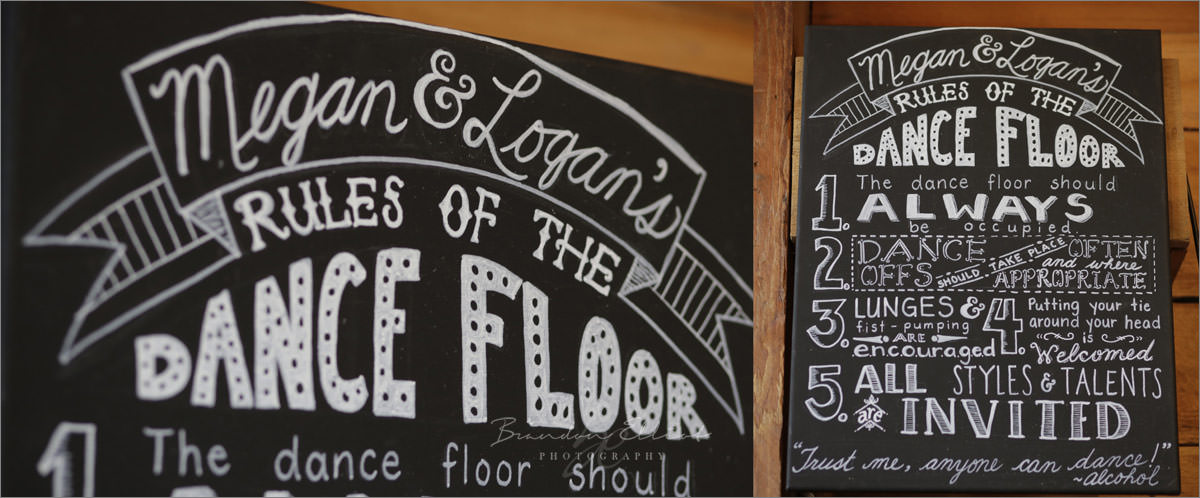 Megan & Logan's
RULES OF THE
DANCE FLOOR
1. The dance floor should
Brandon Elliott
PHOTOGRAPHY
Megan & Logan's
RULES OF THE
DANCE FLOOR
1. The dance floor should
ALWAYS
be occupied.
2. DANCE OFFS SHOULD TAKE PLACE OFTEN
and where
APPROPRIATE
3. LUNGES &
fist-pumping
ARE
encouraged
4. Putting your tie
around your head
is
Welcomed
5. ALL STYLES & TALENTS
are INVITED
"Trust me, anyone can dance!"
~alcohol